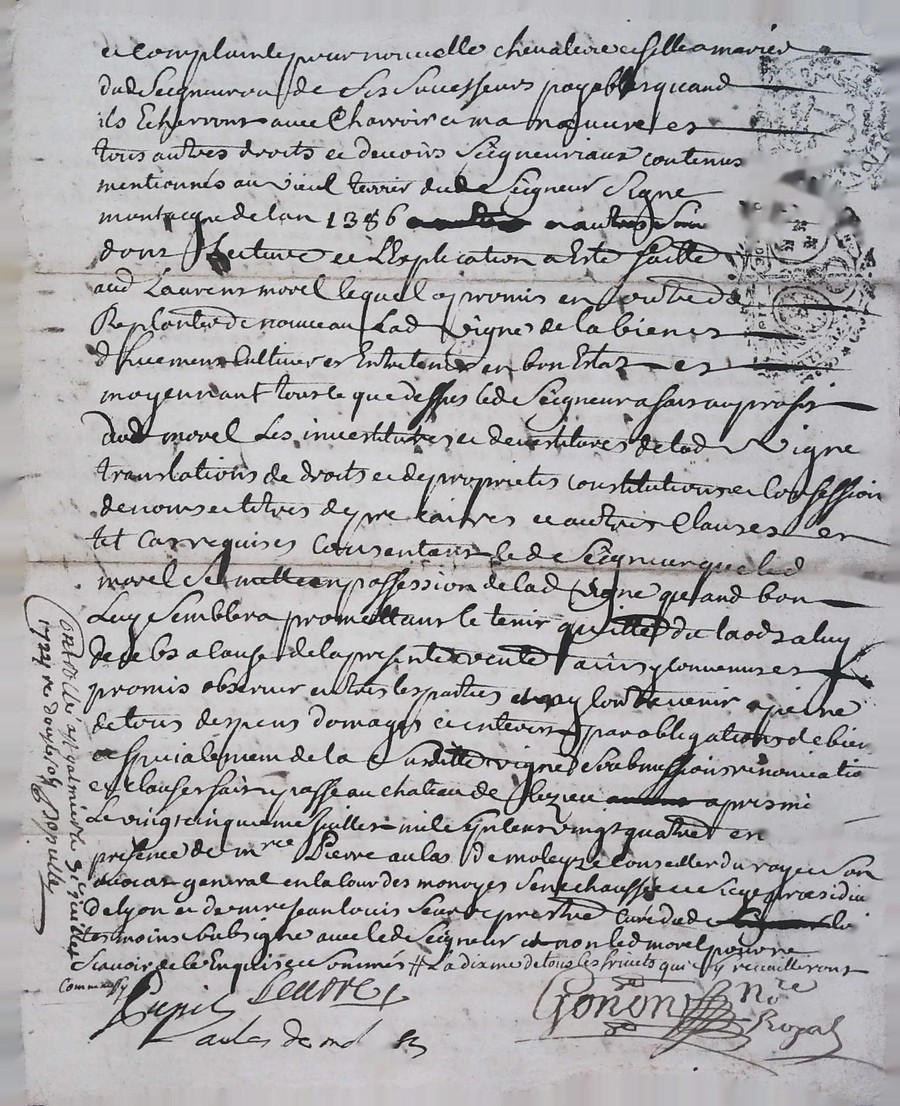 et complainte pour nouvelle chevalerie et fille a marier
dud Seigneur ou de Ses Successeurs payables quand
ils Echerront avec Charroir et manoeuvre et
tous autres droits et devoirs Seigneuriaux contenus
mentionnés au vieul terrir dud Seigneur Signe
montaigne de lan 1386
dont Lecture et L'explication a Esté faitte
aud Laurens morel lequel a promis en outre de
Replanter de nouveau Lad Vigne de la bieres
Cultiver et Entretenir en bon Estat et
moyennant tout ce que dessus led Seigneur a fait au profit
dud morel Les investitures et devestitures de lad Vigne
translations de droits et de proprietés constitutions et Confession
de noms et titres de precaires et autres Clauses en
tel Cas requises Consentant led Seigneur que led
morel Se mette en possession de lad Vigne quand bon
Luy Semblera promettant le tenir quitte du laods a luy
deub a cause de la presente vente ainsy convenu et
promis observer entre les parties et ny contrevenir a peine
de tous despens domages et interets par obligations de bien
et specialement de la Susditte vigne Soubmissions renonciatio
et clauses fait et passé au chateau de apres mi
Le vingt cinquieme Juillet mil sept cens vingt quatre en
presence de mre Pierre aulas de moleyze Conseiller du roy et Son
avocat general en la Cour des monoyes Senechaussee et Siege præsidia
de Lyon et de mre Jean louis Seurre prestre Curé dud
tesmoins Soubsigne avec led Seigneur et non led morel pour ne
Scavoir de ce Enquis et Sommés # La dixme de tous les fruits qui sy recueilleront
Pupil Seurre
aulas de mol
Gonon No re
Royal
Controllé
1724 re douze sols
Commis